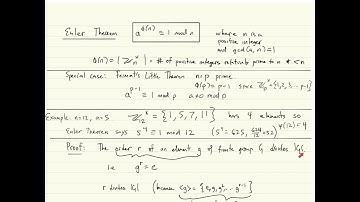 Euler Theorem a^φ(n) ≡ 1 mod n where n is a
positive integer
and gcd(a, n) = 1
φ(n) = |ℤₙˣ| = # of positive integers relatively prime to n & < n
Special case: Fermat's Little Theorem n=p prime
φ(p) = p-1 since ℤₚˣ = {1, 2, 3, ... p-1}
a^p-1 ≡ 1 mod p a≢0 mod p
Example: n=12, a=5. ℤ₁₂ˣ = {1, 5, 7, 11} has 4 elements so φ(12) = 4
Euler Theorem says 5⁴ ≡ 1 mod 12 (5⁴ = 625,
Proof: The order r of an element g of finite group G divides |G|.
ie g^r = e
r divides |G| (because <g> = {e, g, g², ... g^r-1}